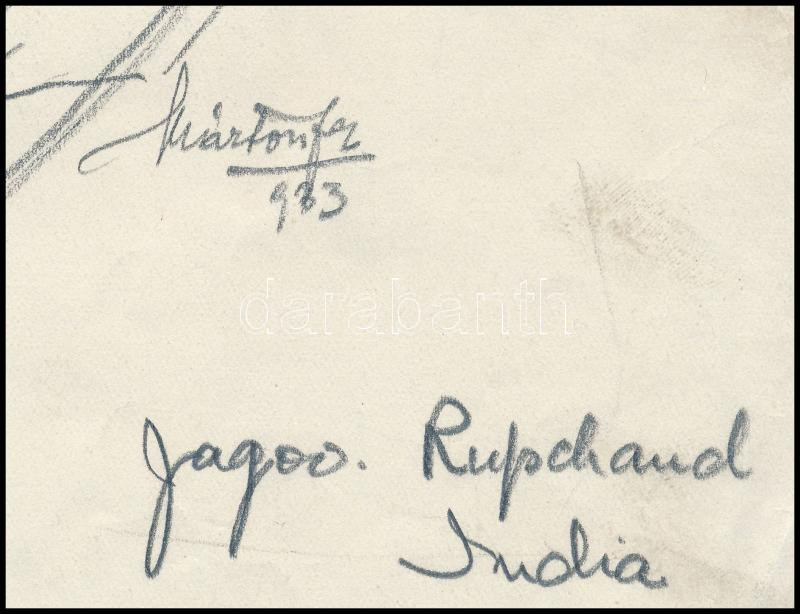 Mártonfer
933
darabanth
Jagoo. Rupchand
India